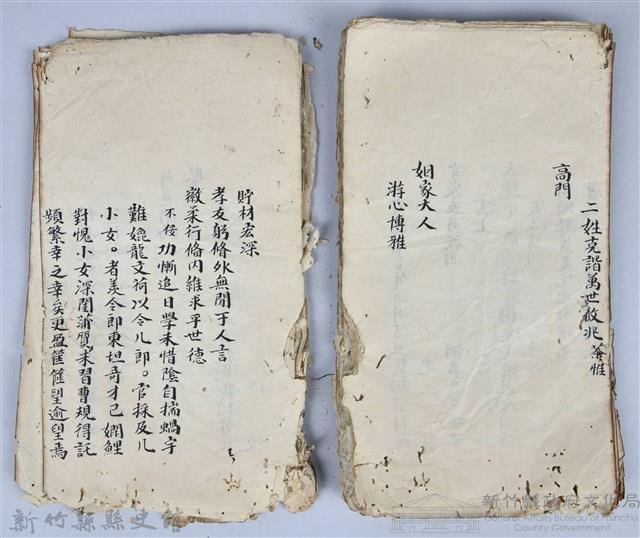 二姓克諧萬世啟兆 恭惟
高門
姻家大人
游心博雅
貯材宏深
孝友躬脩外無間于人言
徽柔行脩內維求乎世德
不佞功慚追日學未惜陰自揣蝸字
難媲龍文荷以令儿郎。官採及几
小女。者羡令郎東坦奇才已嫻鯉
對愧小女深閨蒲質未習曹規得託
頻繁幸之幸矣更盈筐篚望逾望焉
新竹縣縣史館
新竹縣政府文化局
General Affairs Bureau of Hsinchu
County Government